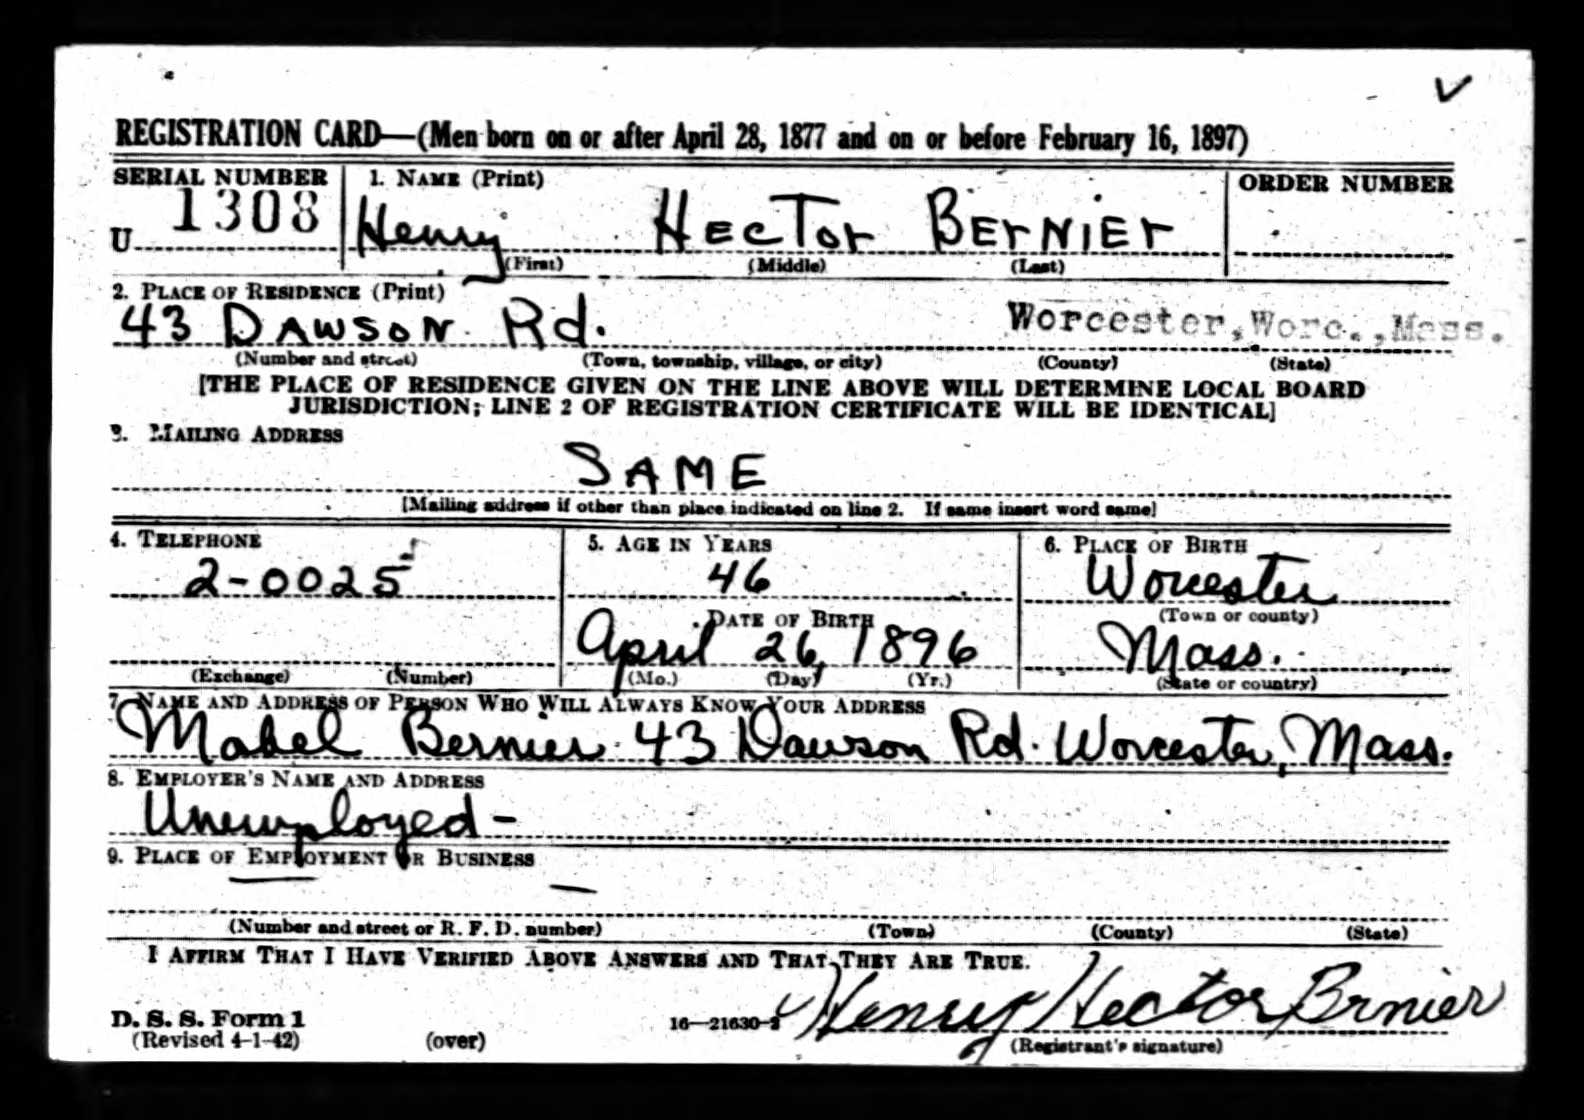 REGISTRATION CARD—(Men born on or after April 28, 1877 and on or before February 16, 1897)
SERIAL NUMBER 1. NAME (Print) ORDER NUMBER
U 1308 Henry HECTOR BERNIER
(First) (Middle) (Last)
2. PLACE OF RESIDENCE (Print)
43 DAWSON Rd. Worcester, Worc., Mass.
(Number and street) (Town, township, village, or city) (County) (State)
[THE PLACE OF RESIDENCE GIVEN ON THE LINE ABOVE WILL DETERMINE LOCAL BOARD
JURISDICTION; LINE 2 OF REGISTRATION CERTIFICATE WILL BE IDENTICAL]
3. MAILING ADDRESS
SAME
[Mailing address if other than place indicated on line 2. If same insert word same]
4. TELEPHONE 5. AGE IN YEARS 6. PLACE OF BIRTH
2-0025 46 Worcester
DATE OF BIRTH (Town or county)
April 26, 1896 Mass.
(Exchange) (Number) (Mo.) (Day) (Yr.) (State or country)
7. NAME AND ADDRESS OF PERSON WHO WILL ALWAYS KNOW YOUR ADDRESS
Mabel Bernier 43 Dawson Rd. Worcester, Mass.
8. EMPLOYER'S NAME AND ADDRESS
Unemployed -
9. PLACE OF EMPLOYMENT OR BUSINESS
—
(Number and street or R. F. D. number) (Town) (County) (State)
I AFFIRM THAT I HAVE VERIFIED ABOVE ANSWERS AND THAT THEY ARE TRUE.
D. S. S. Form 1 16—21630-2 Henry Hector Brnier
(Revised 4-1-42) (over) (Registrant's signature)